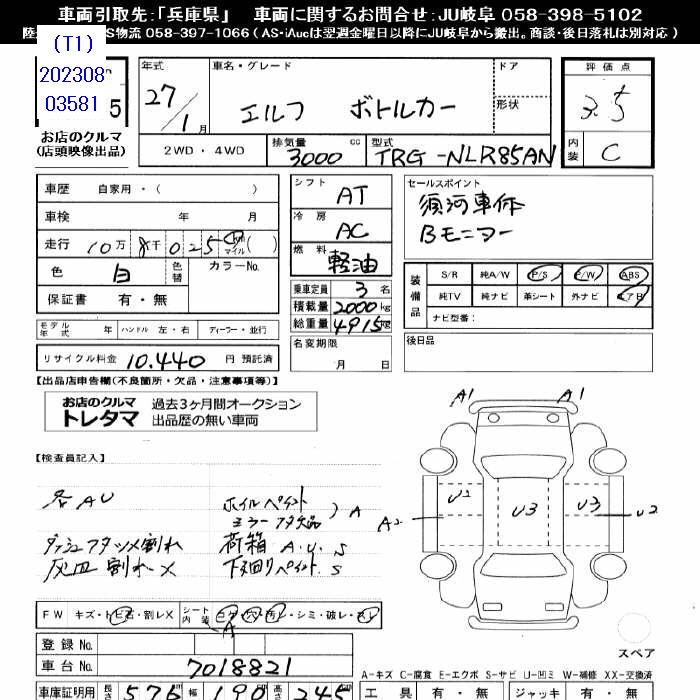 車両引取先:「兵庫県」 車両に関するお問合せ:JU岐阜 058-398-5102
S物流 058-397-1066 (AS・iAucは翌週金曜日以降にJU岐阜から搬出。商談・後日落札は別対応)
(T1)
202308
03581
5
お店のクルマ
(店頭映像出品)
年式 車名・グレード ドア 評価点
27/1月 エルフ ボトルカー 形状 3.5
2WD・4WD 排気量 3000 cc 型式 TRG-NLR85AN 内装 C
車歴 自家用・( )
車検 年 月
走行 10万8千025 km マイル ( )
色 白 色替 カラーNo.
保証書 有・無
モデル年式 年 ハンドル 左・右 ディーラー・並行
リサイクル料金 10.440 円 預託済
シフト AT
冷房 AC
燃料 軽油
乗車定員 3 名
積載量 2000 kg
総重量 4915 kg
名変期限
月 日
セールスポイント
須河車体
Bモニター
装備品 S/R 純A/W P/S P/W ABS
純TV 純ナビ 革シート 外ナビ エアB
ナビ型番:
後日品
【出品店申告欄(不良箇所・欠品・注意事項等)】
お店のクルマ
トレタマ
過去3ヶ月間オークション
出品歴の無い車両
【検査員記入】
各AU
ダッシュフタツメ割れ
灰皿割れX
ホイルペイント
ミラーフタ欠品 ) A
荷箱 A.U.S
下回りペイント.S
A1 A1
U2 U3 U3
A2 U2
スペア
FW キズ・トビ石・割レX シート内装 コゲ・穴・汚レ・シミ・破レ・スレ
A
登録No.
車台No. 7018821
車庫証明用 長さ 576 幅 190 高さ 245
A−キズ C−腐食 E−エクボ S−サビ U−凹ミ W−補修 XX−交換済
工具 有・無 ジャッキ 有・無